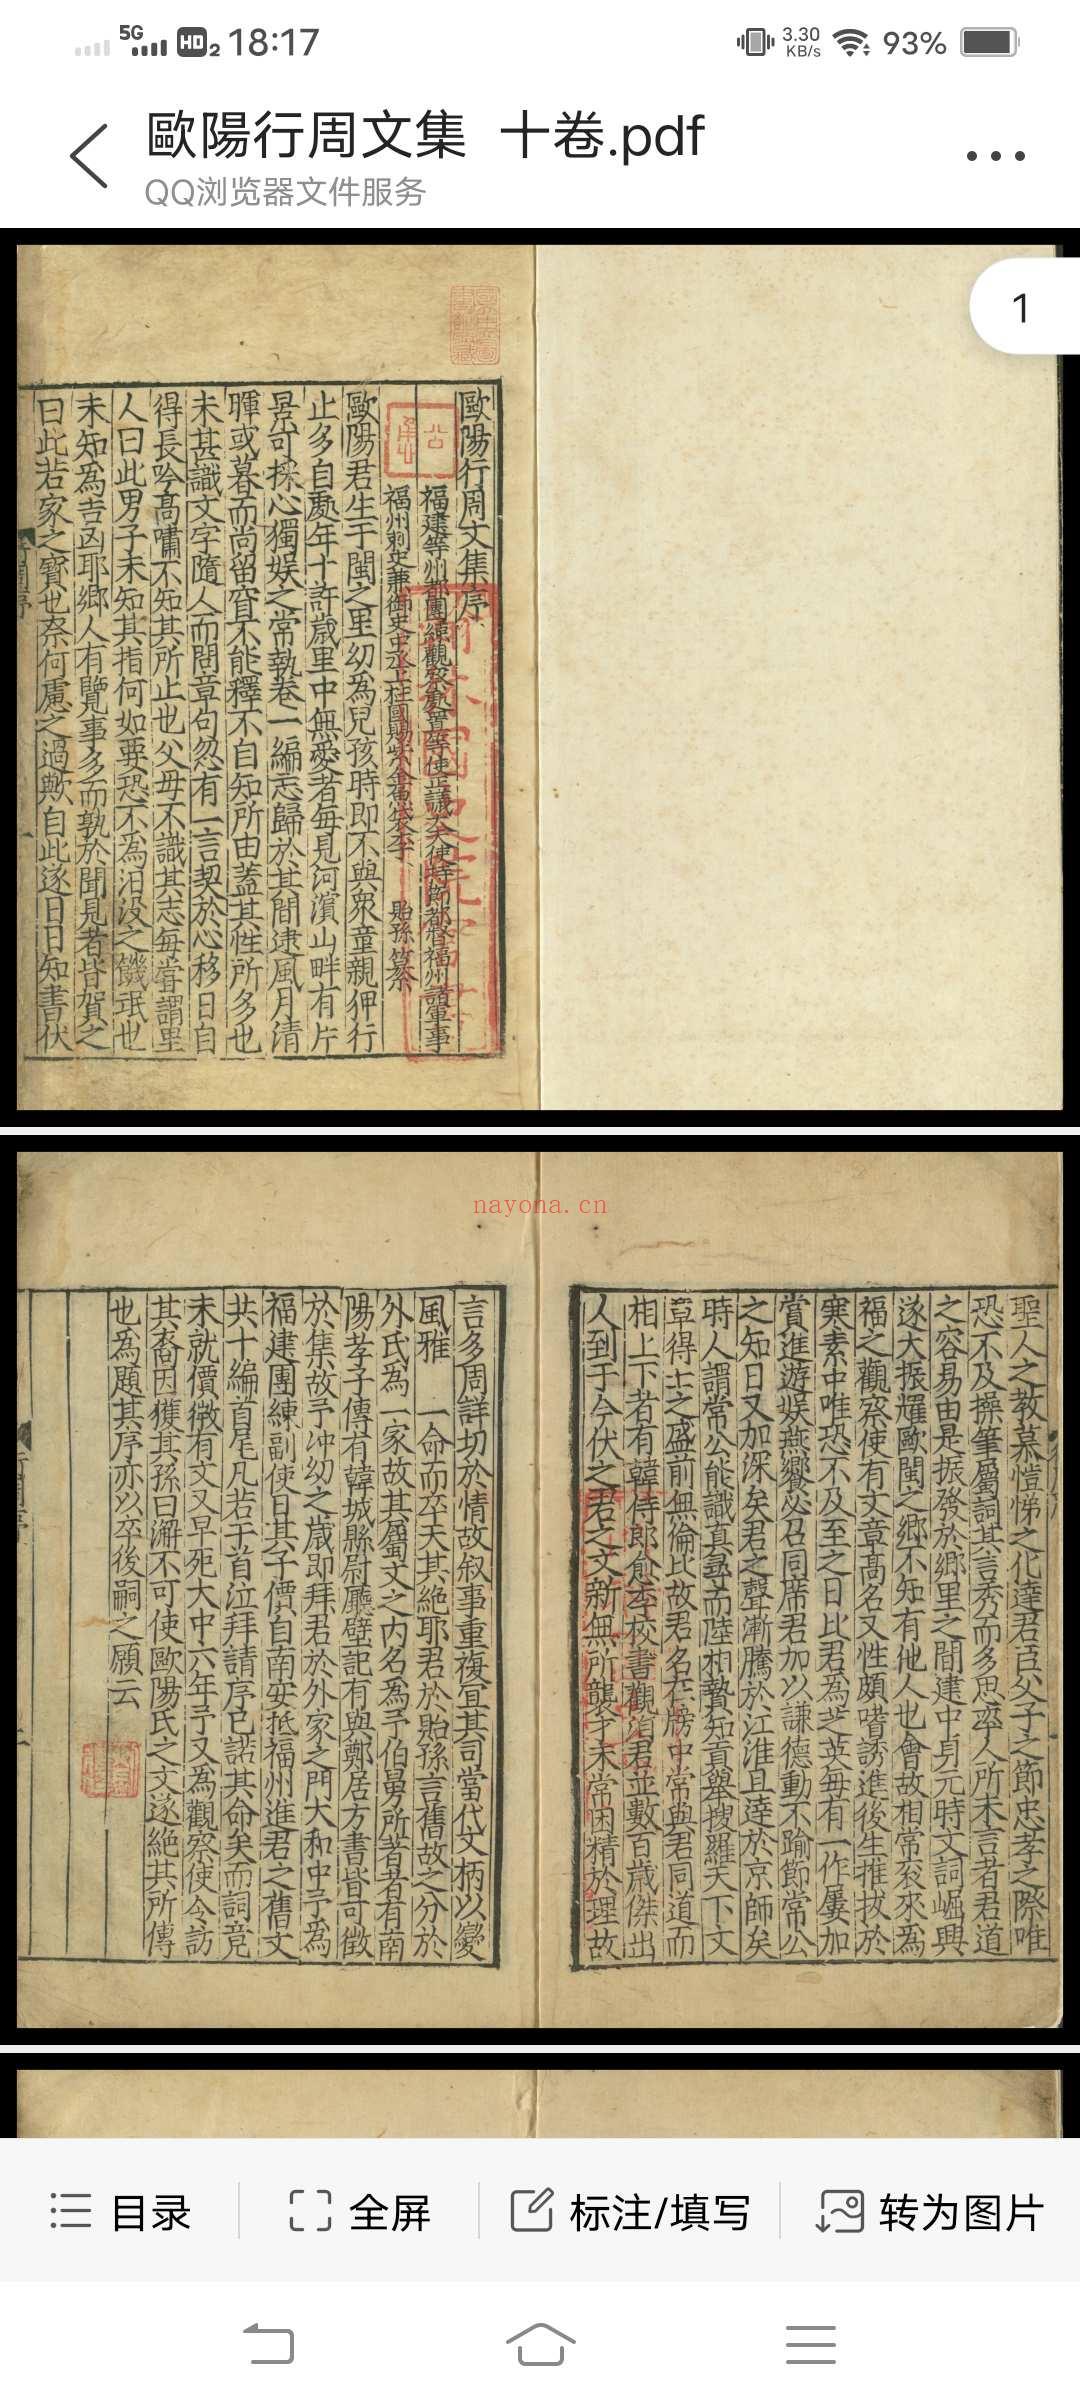 5G HD 2 18:17 3.30 KB/s 93%
歐陽行周文集 十卷.pdf
QQ浏览器文件服务
1
歐陽行周文集序
福建等州都團練觀察處置等使正議大夫使持節都督福州諸軍事
福州刺史兼御史中丞上柱國賜紫金魚袋李 貽孫 纂
歐陽君生于閩之里幼為兒孩時即不與衆童親狎行
止多自處年十許歲里中無愛者每見河濱山畔有片
景可採心獨娱之常執卷一編忘歸於其間逮風月清
暉或暮而尚留窅不能釋不自知所由蓋其性所多也
未甚識文字隨人而問章句忽有一言契於心移日自
得長吟高嘯不知其所止也父母不識其志每嘗謂里
人曰此男子未知其指何如要恐不為汨没之饑氓也
未知為吉凶耶鄉人有覽事多而孰於聞見者皆賀之
曰此若家之寳也奈何慮之過歟自此遂日日知書伏
nayona.cn
聖人之教慕愷悌之化達君臣父子之節忠孝之際唯
恐不及操筆屬詞其言秀而多思率人所未言者君道
之容易由是振發於鄉里之間建中貞元時文詞崛興
遂大振耀歐閩之鄉不知有他人也會故相常衮來為
福之觀察使有文章高名又性頗嗜誘進後生推拔於
寒素中唯恐不及至之日比君為芝英每有一作屢加
賞進遊娱燕饗必召同席君加以謙德動不踰節常公
之知日又加深矣君之聲漸騰於江淮且達於京師矣
時人謂常公能識真尋而陸相贄知貢舉搜羅天下文
章得士之盛前無倫比故君名在牓中常與君同道而
相上下者有韓侍郎愈李校書觀洎君並數百歲傑出
人到于今伏之君之文新無所襲才未常困精於理故
言多周詳切於情故叙事重複宜其司當代文柄以變
風雅 一命而卒天其絶耶君於貽孫言舊故之分於
外氏為一家故其屬文之内名為予伯舅所著者有南
陽孝子傳有韓城縣尉廳壁記有與鄭居方書皆可徵
於集故予冲幼之歲即拜君於外家之門大和中予為
福建團練副使日其子價自南安抵福州進君之舊文
共十編首尾凡若干首泣拜請序已諾其命矣而詞竟
未就價微有文又早死大中六年予又為觀察使令訪
其裔因獲其孫曰澥不可使歐陽氏之文遂絶其所傳
也為題其序亦以卒後嗣之願云
目录 全屏 标注/填写 转为图片